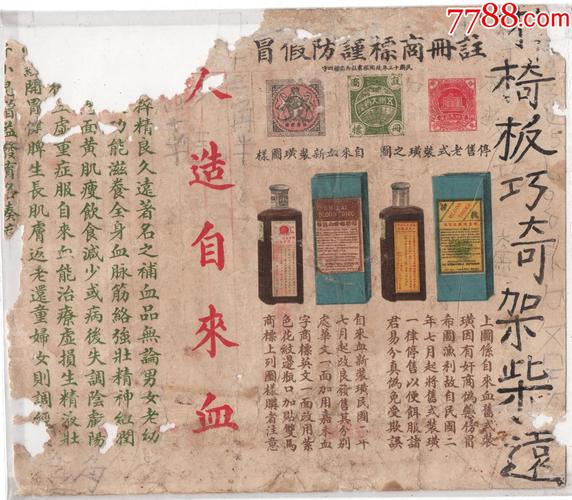 椅板巧奇架柴遠
註冊商標謹防假冒
停售老式裝璜之圖
自來血新裝璜圖樣
BLOOD TONIC
上圖係自來血舊式裝
璜因有奸商偽傍冒
希圖漁利故自民國二
年七月起將舊式裝璜
一律停售以便服諸
君易分真偽免受欺誤
自來血新裝璜民國年
七月起改良發售其分別
處華文一面加用嘉禾血
字商標英文一面改用紫
色花紋邊瓶口加貼雙馬
商標上列圖樣購者注意
人造自來血
粹精良久遠著名之補血品無論男女老幼
功能滋養全身血脈筋絡強壯精神紅潤
面黃肌瘦飲食減少或病後失調陰虧陽
虛重症服自來血能治療虛損生精液壯
開胃健脾生長肌膚返老還童婦女則調經
7788.com